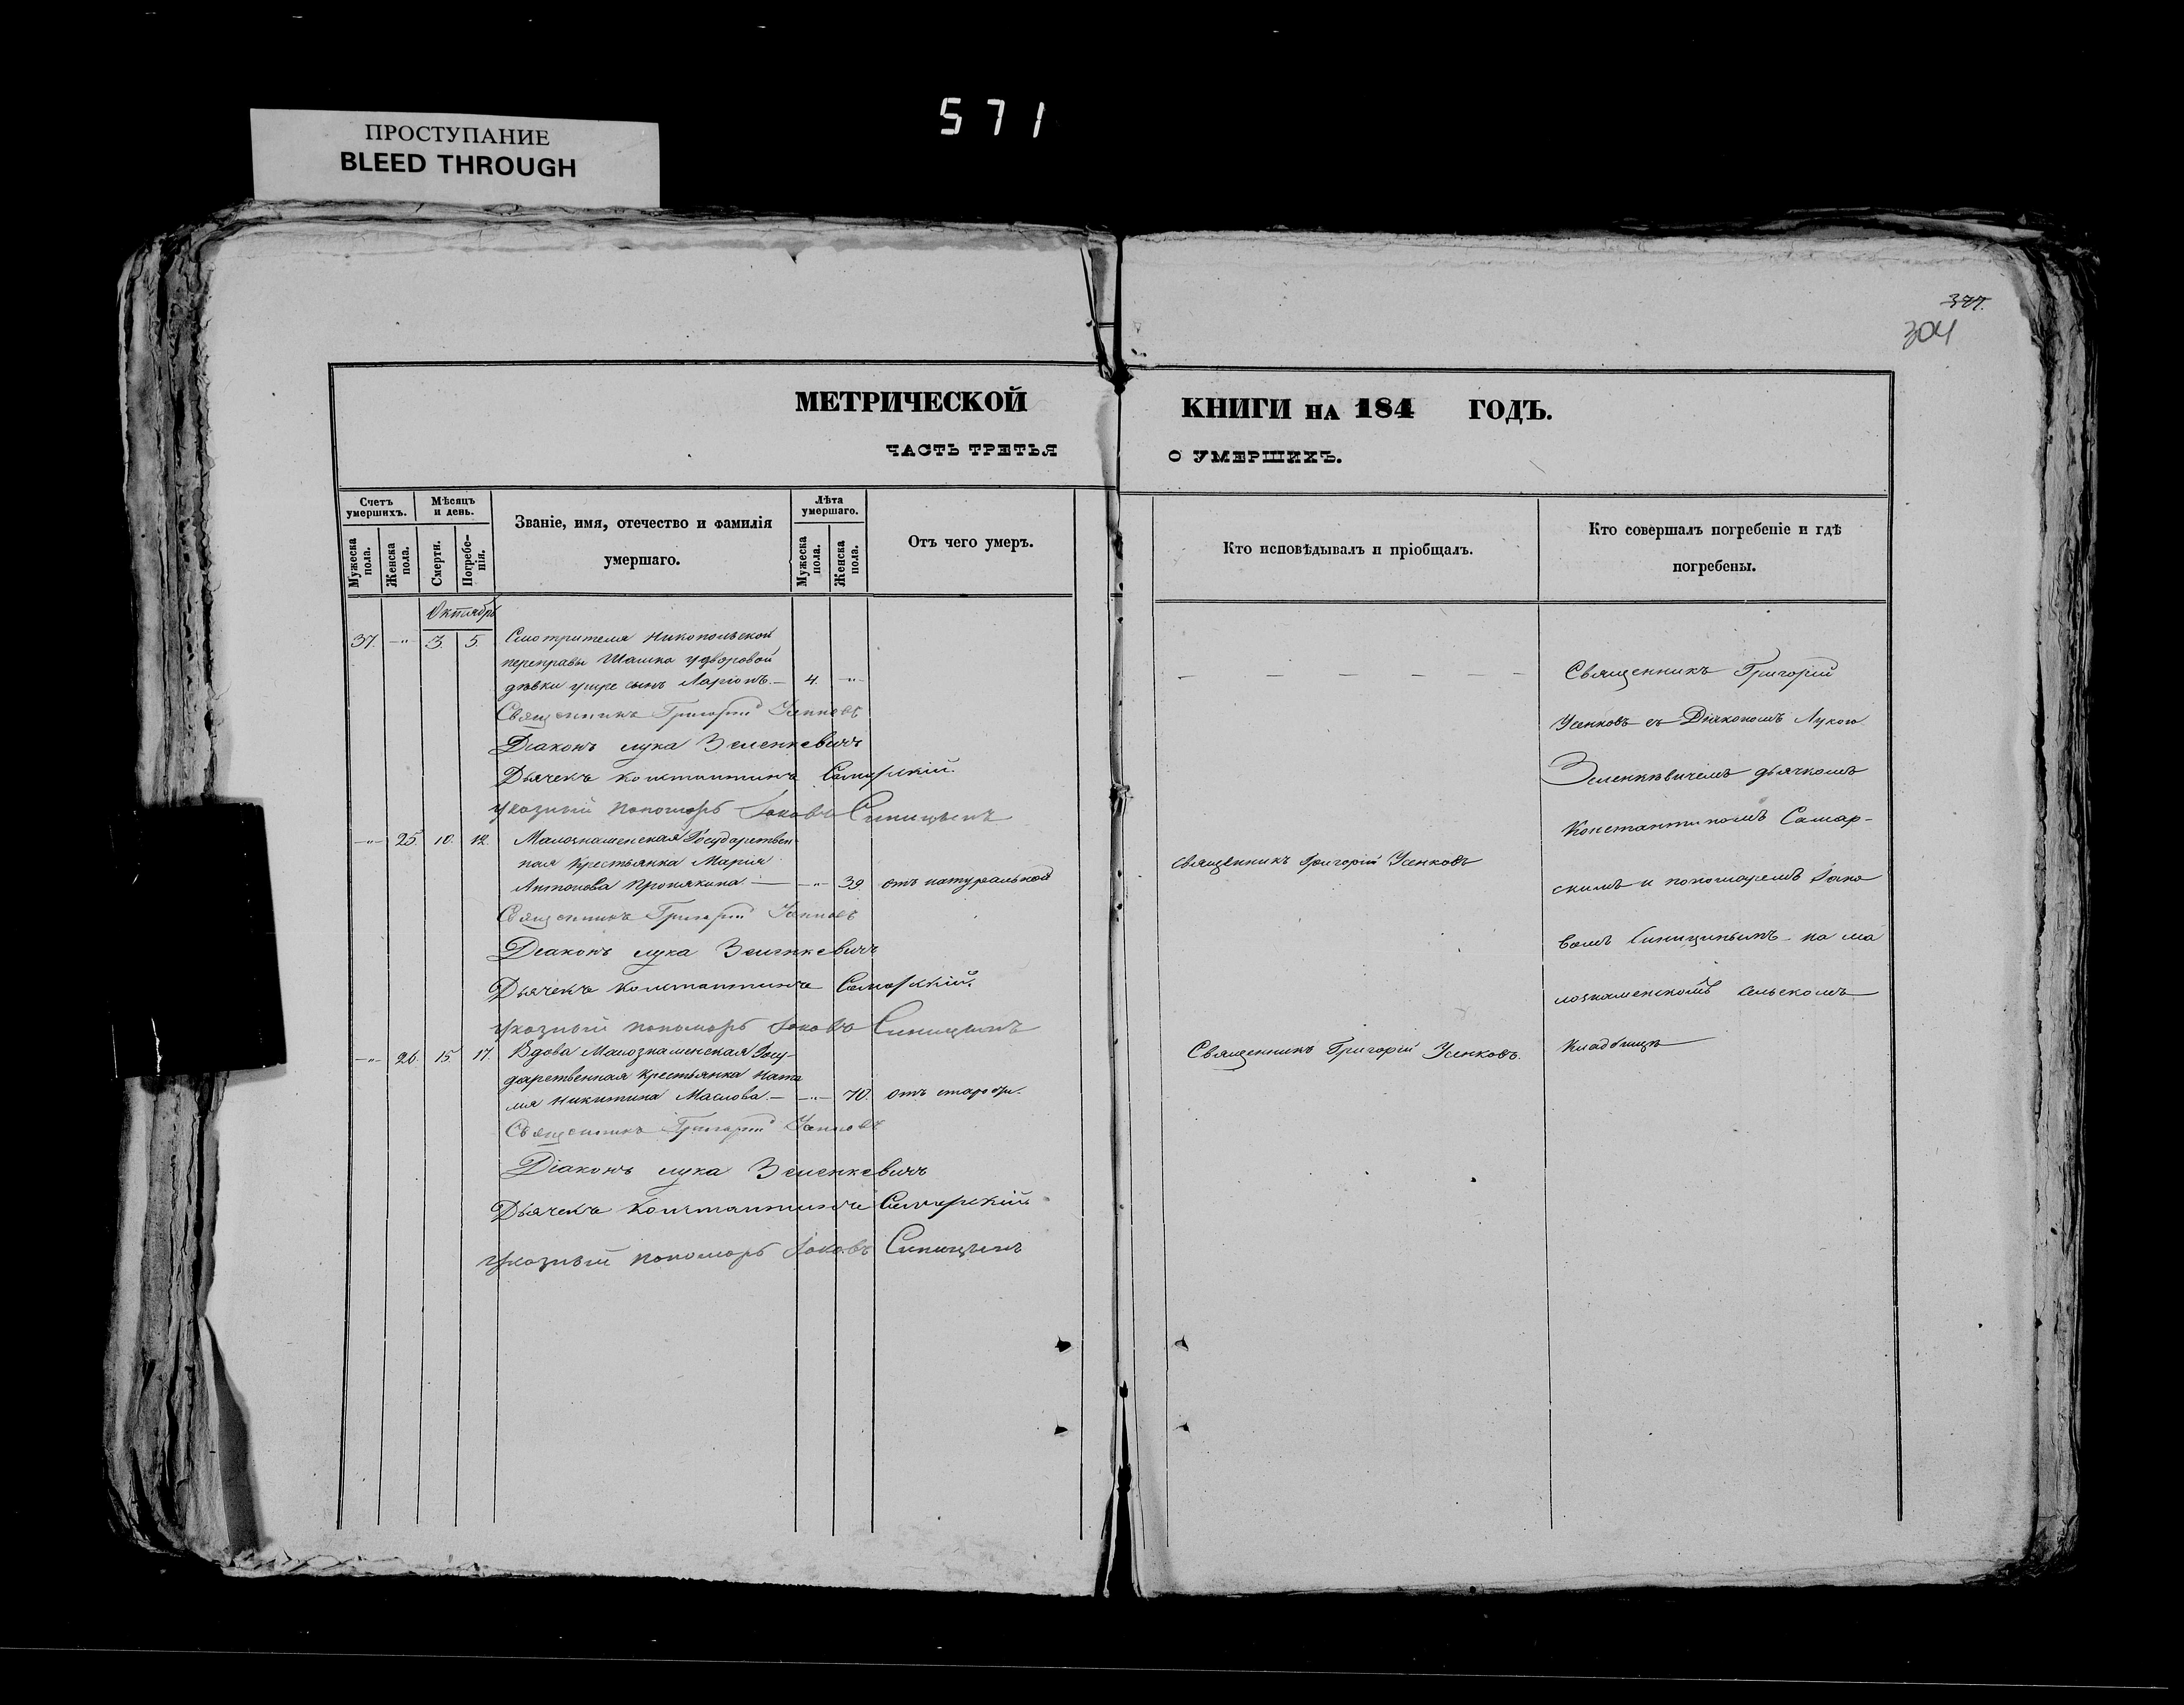 ПРОСТУПАНИЕ
BLEED THROUGH
571
377.
304
МЕТРИЧЕСКОЙ КНИГИ НА 184 ГОДЪ.
ЧАСТЬ ТРЕТЬЯ О УМЕРШИХЪ.
Счетъ умершихъ.
Мужеска пола.
Женска пола.
Мѣсяцъ и день.
Смерти.
Погребе-нія.
Званіе, имя, отечество и фамилія
умершаго.
Лѣта умершаго.
Мужеска пола.
Женска пола.
Отъ чего умеръ.
Кто исповѣдывалъ и пріобщалъ.
Кто совершалъ погребеніе и гдѣ
погребены.
Октябрь
37. -"- 3. 5. Смотрителя Никопольской
переправы Шашка у дворовой
дѣвки сынъ Ларіонъ. — 4. -"-
Священникъ Григорій Усенковъ
Діаконъ Лука Зеленкевичъ
Дьячекъ Константинъ Самарскій.
Указный пономарь Іаковъ Синицынъ
-"- 25. 10. 12. Малознаменская Государствен-
ная крестьянка Марія
Антонова — -"- 39. отъ натуральной
Священникъ Григорій Усенковъ
Діаконъ Лука Зеленкевичъ
Дьячекъ Константинъ Самарскій.
Указный пономарь Іаковъ Синицынъ
-"- 26. 15 17. Вдова Малознаменская Госу-
дарственная крестьянка Ната
лія Никитина Маслова. — -"- 70. отъ старости.
Священникъ Григорій Усенковъ
Діаконъ Лука Зеленкевичъ
Дьячекъ Константинъ Самарскій
Указный пономарь Іаковъ Синицынъ
Священникъ Григорій Усенковъ
Священникъ Григорій Усенковъ.
Священникъ Григорій
Усенковъ съ Діакономъ Лукою
Зеленкевичемъ дьячкомъ
Константиномъ Самар-
скимъ и пономаремъ Іако
вомъ Синицинымъ на ма
лознаменскомъ сельскомъ
кладбищѣ